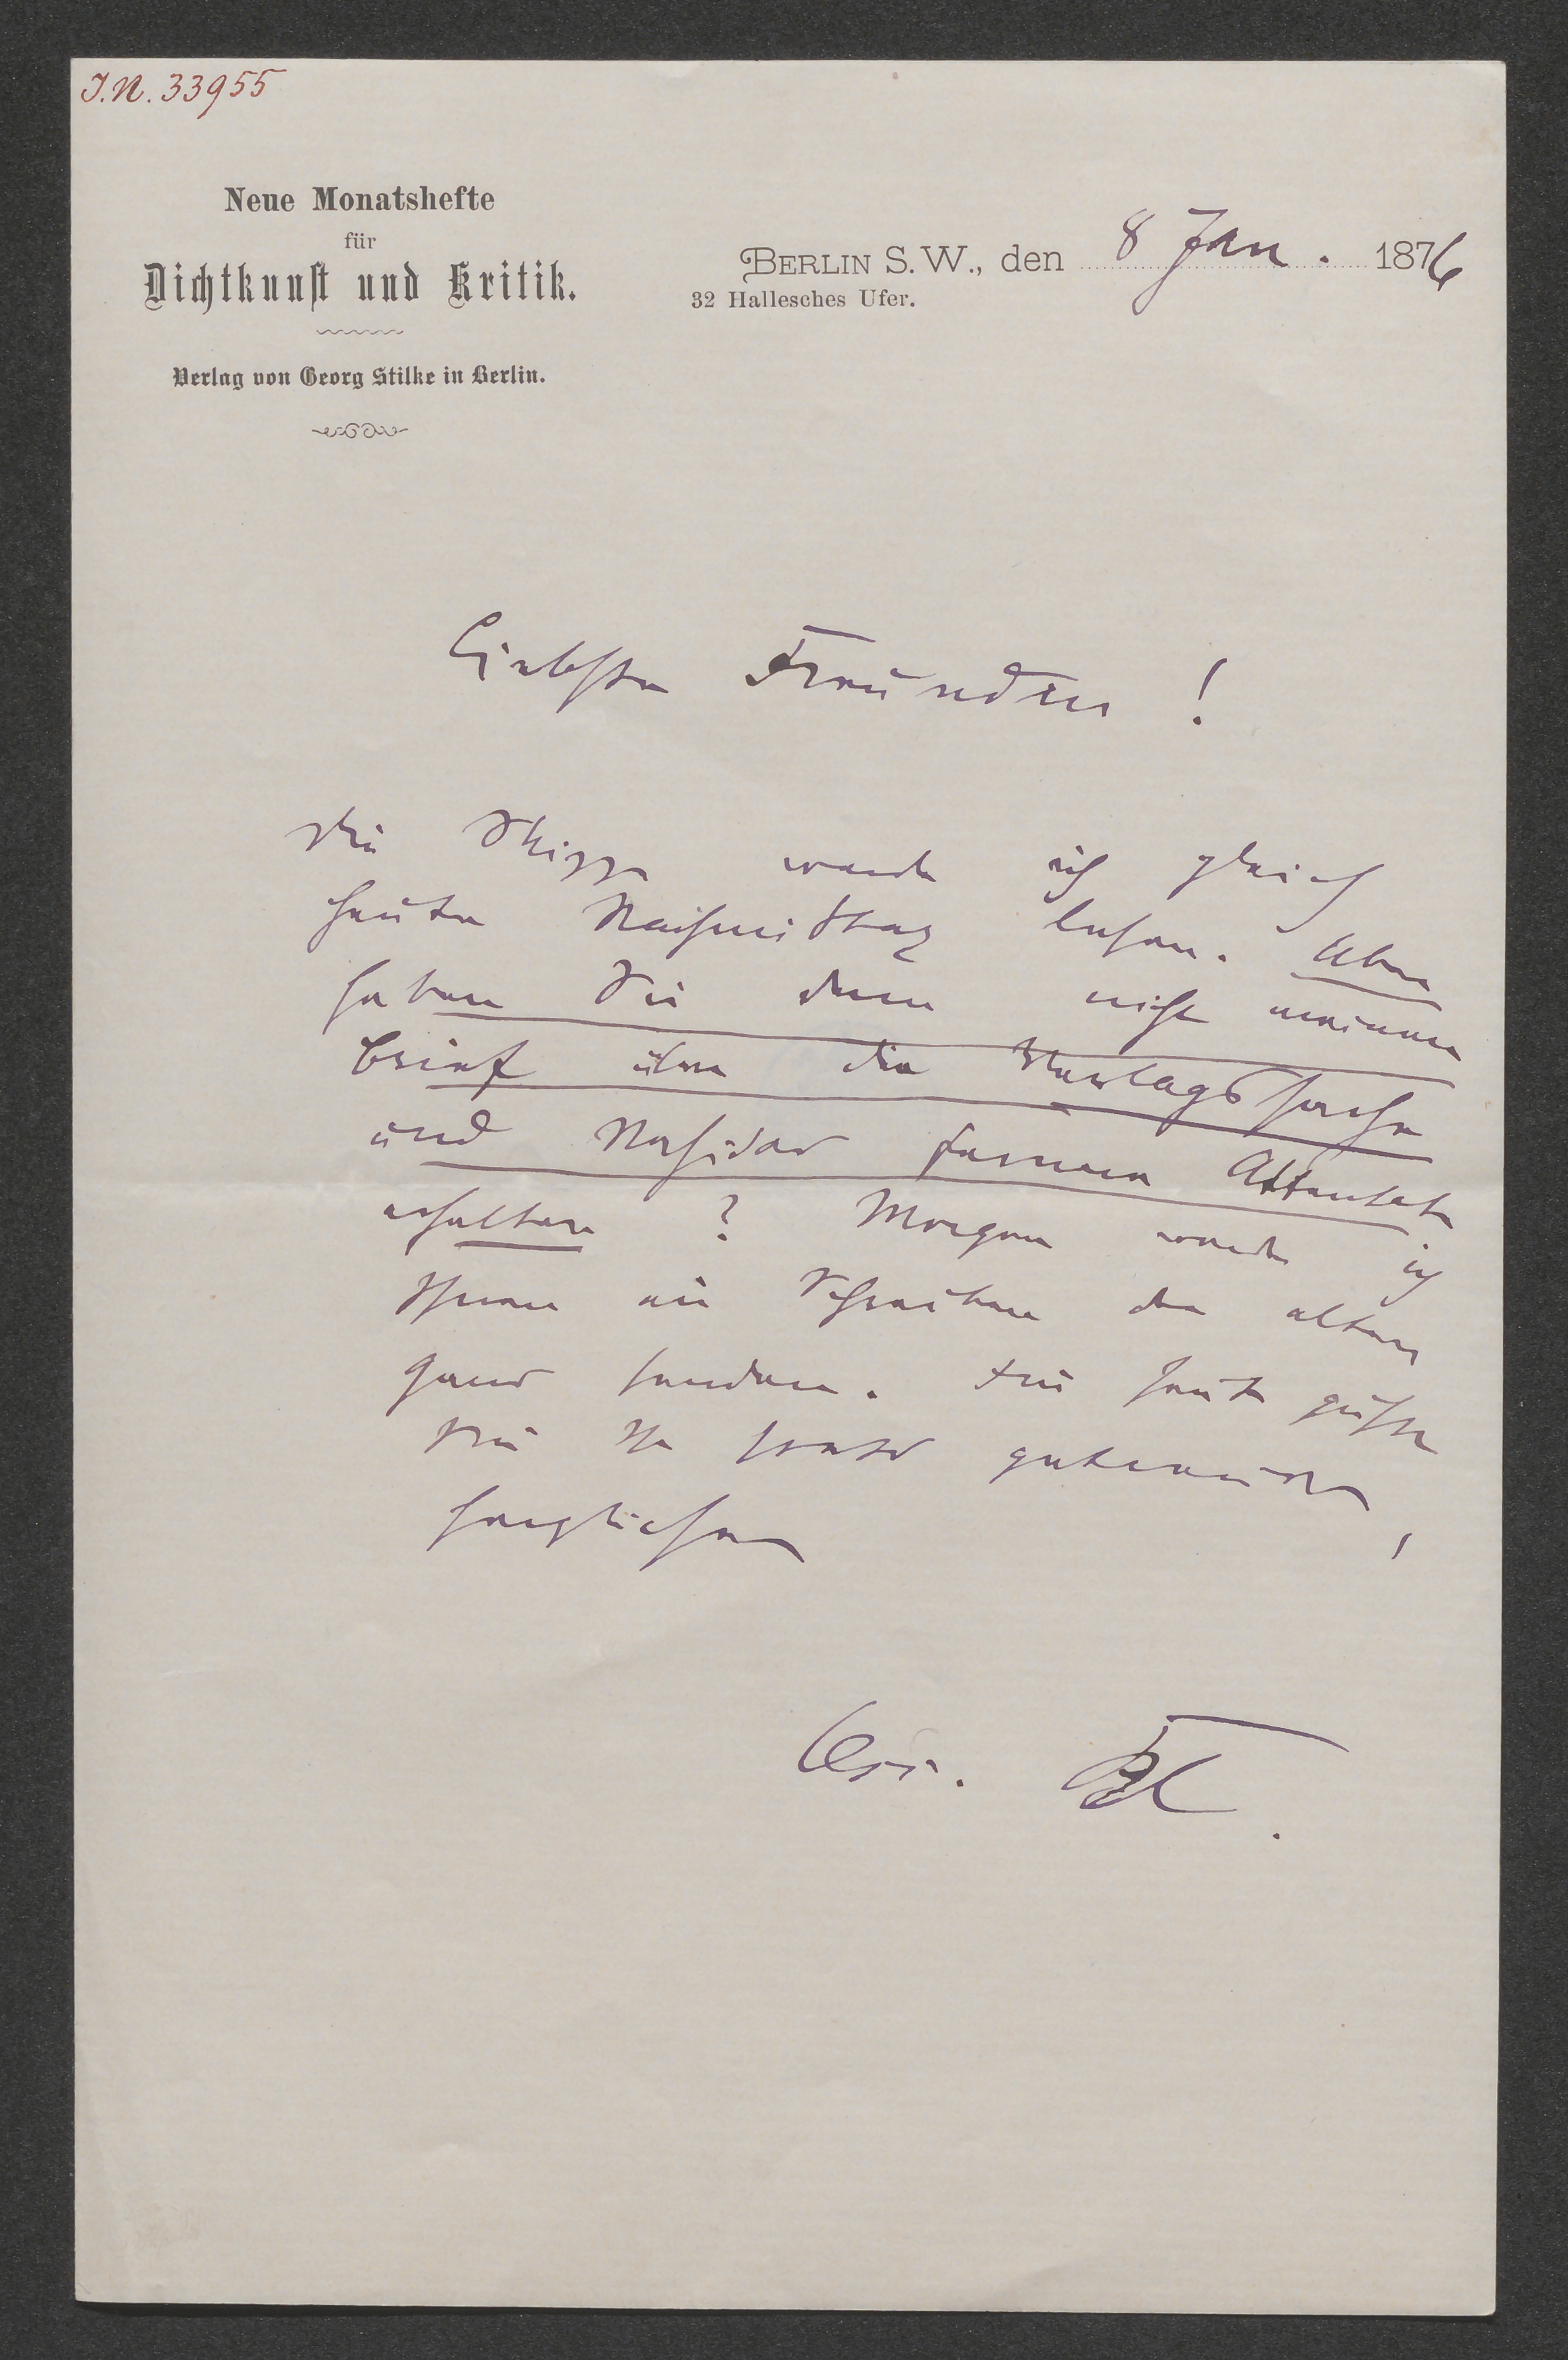 I.N. 33955
Neue Monatshefte
für
Dichtkunst und Kritik.
Verlag von Georg Stilke in Berlin.
BERLIN S. W., den 8 Jan. 1876
32 Hallesches Ufer.
Liebste Freundin!
Die Skizze werde ich gleich
heute Nachmittag lesen. Aber
haben Sie denn nicht meinen
Brief über die Verlagssache
und
erhalten? Morgen werde ich
Ihnen ein Schreiben der alten
senden. Für heute grüßt
Sie
herzlichen